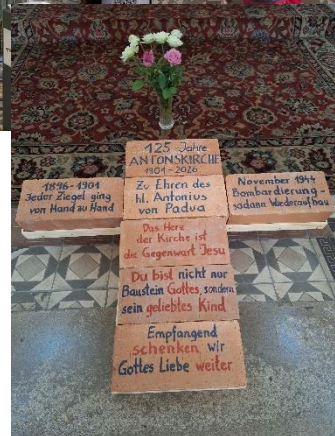 125 Jahre
ANTONSKIRCHE
1901-2026
1896-1901
Jeder Ziegel ging
von Hand zu Hand
Zu Ehren des
hl. Antonius
von Padua
November 1944
Bombardierung-
sodann Wiederaufbau
Das Herz
der Kirche ist
die Gegenwart Jesu
Du bist nicht nur
Baustein Gottes, sondern
sein geliebtes Kind
Empfangend
schenken wir
Gottes Liebe weiter